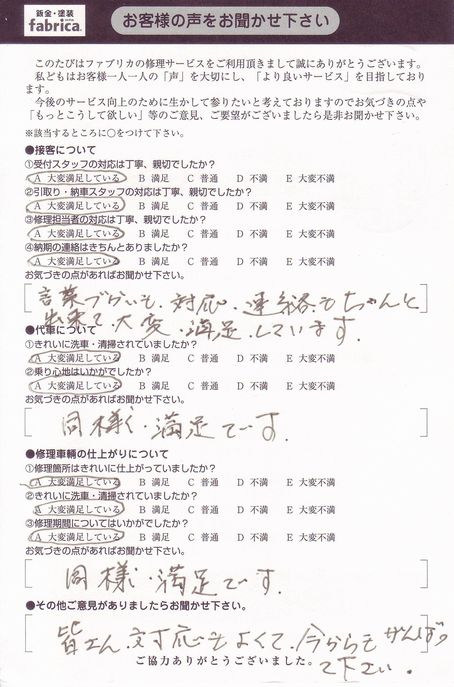 鈑金・塗装
fabrica.
お客様の声をお聞かせ下さい
このたびはファブリカの修理サービスをご利用頂きまして誠にありがとうございます。
私どもはお客様一人一人の「声」を大切にし、「より良いサービス」を目指しております。
今後のサービス向上のために生かして参りたいと考えておりますのでお気づきの点や
「もっとこうして欲しい」等のご意見、ご要望がございましたら是非お聞かせ下さい。
※該当するところに○をつけて下さい。
●接客について
①受付スタッフの対応は丁寧、親切でしたか?
A 大変満足している B 満足 C 普通 D 不満 E 大変不満
②引取り・納車スタッフの対応は丁寧、親切でしたか?
A 大変満足している B 満足 C 普通 D 不満 E 大変不満
③修理担当者の対応は丁寧、親切でしたか?
A 大変満足している B 満足 C 普通 D 不満 E 大変不満
④納期の連絡はきちんとありましたか?
A 大変満足している B 満足 C 普通 D 不満 E 大変不満
お気づきの点があればお聞かせ下さい。
言葉づかいも、対応、連絡もちゃんと
出来て、大変、満足しています.
●代車について
①きれいに洗車・清掃されていましたか?
A 大変満足している B 満足 C 普通 D 不満 E 大変不満
②乗り心地はいかがでしたか?
A 大変満足している B 満足 C 普通 D 不満 E 大変不満
お気づきの点があればお聞かせ下さい。
同様に、満足です.
●修理車輌の仕上がりについて
①修理箇所はきれいに仕上がっていましたか?
A 大変満足している B 満足 C 普通 D 不満 E 大変不満
②きれいに洗車・清掃されていましたか?
A 大変満足している B 満足 C 普通 D 不満 E 大変不満
③修理期間についてはいかがでしたか?
A 大変満足している B 満足 C 普通 D 不満 E 大変不満
お気づきの点があればお聞かせ下さい。
同様、満足です.
●その他ご意見がありましたらお聞かせ下さい。
皆さん、対応もよくて、今からもがんばっ
て下さい.
ご協力ありがとうございました。